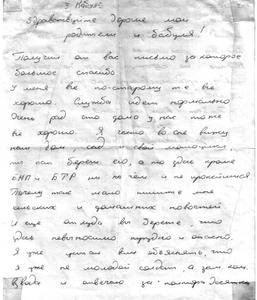 Здравствуйте дорогие мои
родители и бабуля!
Получил от вас письмо за которое
большое спасибо
У меня все по-старому т.е. все
хорошо. Служба идет нормально
Очень рад что дома у вас тоже
все хорошо. Я часто во сне вижу
наш дом, сад и свой мотоцикл,
ты пап береги его, а то здесь кроме
БМП и БТР ни на чем и не прокатишься
Почему так мало пишите мне
сельских и домашних новостей
И еще откуда вы берете что
здесь невыносимо трудно и опасно.
Я уже устал вам объяснять, что
я уже не молодой солдат, а зам. ком.
взвода и отвечаю за